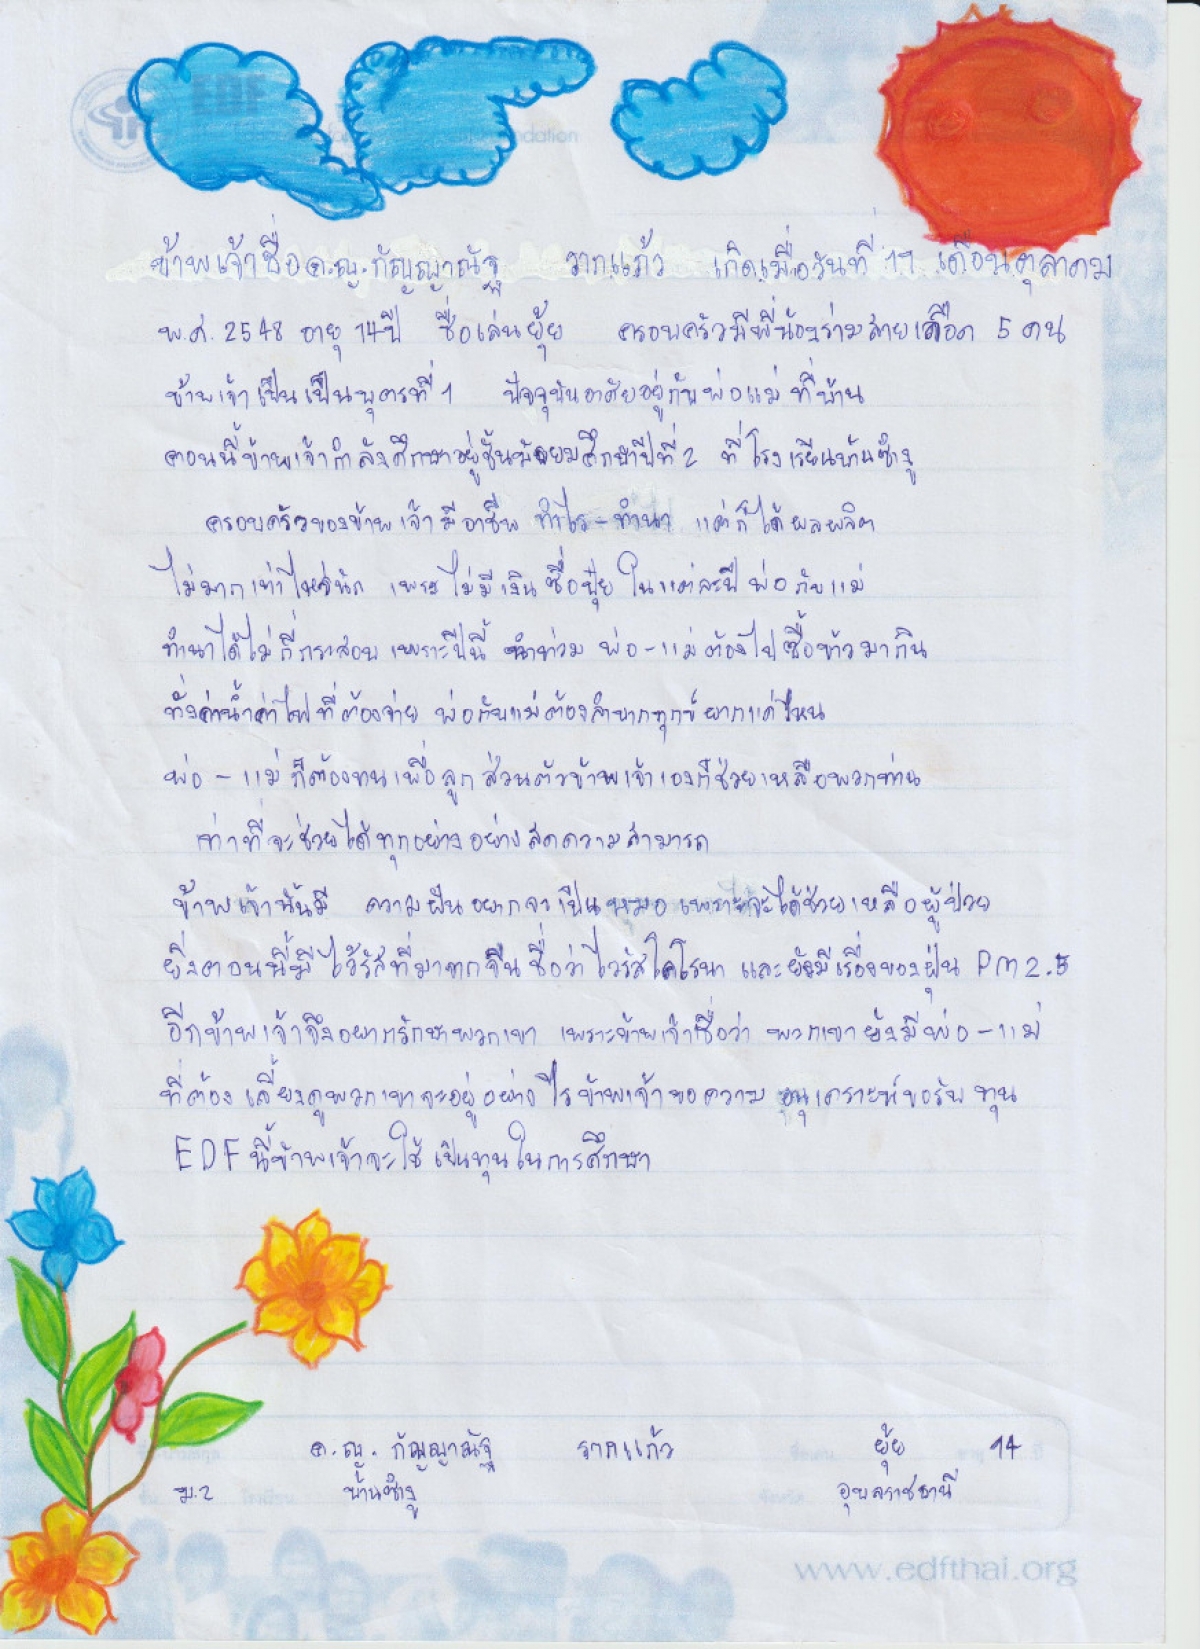 EDF
ข้าพเจ้าชื่อ ด.ญ. กัญญาณัฐ รากแก้ว เกิดเมื่อวันที่ 17 เดือนตุลาคม
พ.ศ. 2548 อายุ 14 ปี ชื่อเล่นยุ้ย ครอบครัวมีพี่น้องร่วมสายเลือด 5 คน
ข้าพเจ้าเป็นเป็นบุตรที่ 1 ปัจจุบันอาศัยอยู่กับพ่อแม่ ที่บ้าน
ตอนนี้ข้าพเจ้ากำลังศึกษาอยู่ชั้นมัธยมศึกษาปีที่ 2 ที่โรงเรียนบ้านซำงู
ครอบครัวของข้าพเจ้ามีอาชีพ ทำไร่-ทำนา แต่ก็ได้ผลผลิต
ไม่มากเท่าไหร่นัก เพราะไม่มีเงินซื้อปุ๋ย ในแต่ละปีพ่อกับแม่
ทำนาได้ไม่กี่กระสอบ เพราะปีนี้ น้ำท่วม พ่อ-แม่ต้องไปซื้อข้าวมากิน
ทั้งค่าน้ำค่าไฟที่ต้องจ่าย พ่อกับแม่ต้องลำบากทุกข์ยากแค่ไหน
พ่อ-แม่ ก็ต้องทนเพื่อลูก ส่วนตัวข้าพเจ้าเองก็ช่วยเหลือพวกท่าน
เท่าที่จะช่วยได้ทุกอย่างอย่างสุดความสามารถ
ข้าพเจ้านั้นมี ความฝันอยากจะเป็นหมอ เพราะจะได้ช่วยเหลือผู้ป่วย
ยิ่งตอนนี้มีไวรัสที่มาจากจีน ชื่อว่าไวรัสโคโรนา และยังมีเรื่องของฝุ่น PM 2.5
อีกข้าพเจ้าจึงอยากรักษาพวกเขา เพราะข้าพเจ้าเชื่อว่า พวกเขายังมีพ่อ-แม่
ที่ต้องเลี้ยงดูพวกเขาจะอยู่อย่างไร ข้าพเจ้าขอความ อนุเคราะห์ขอรับ ทุน
EDF นี้ข้าพเจ้าจะใช้ เป็นทุนในการศึกษา
ด.ญ. กัญญาณัฐ รากแก้ว ยุ้ย 14 ปี
ม.2 บ้านซำงู อุบลราชธานี
www.edfthai.org